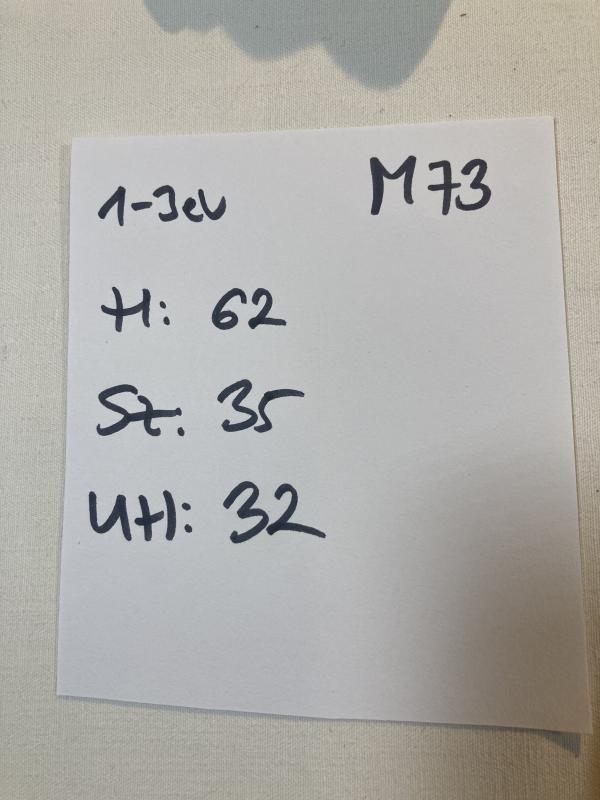 1-3 év M73
H: 62
Sz: 35
UH: 32